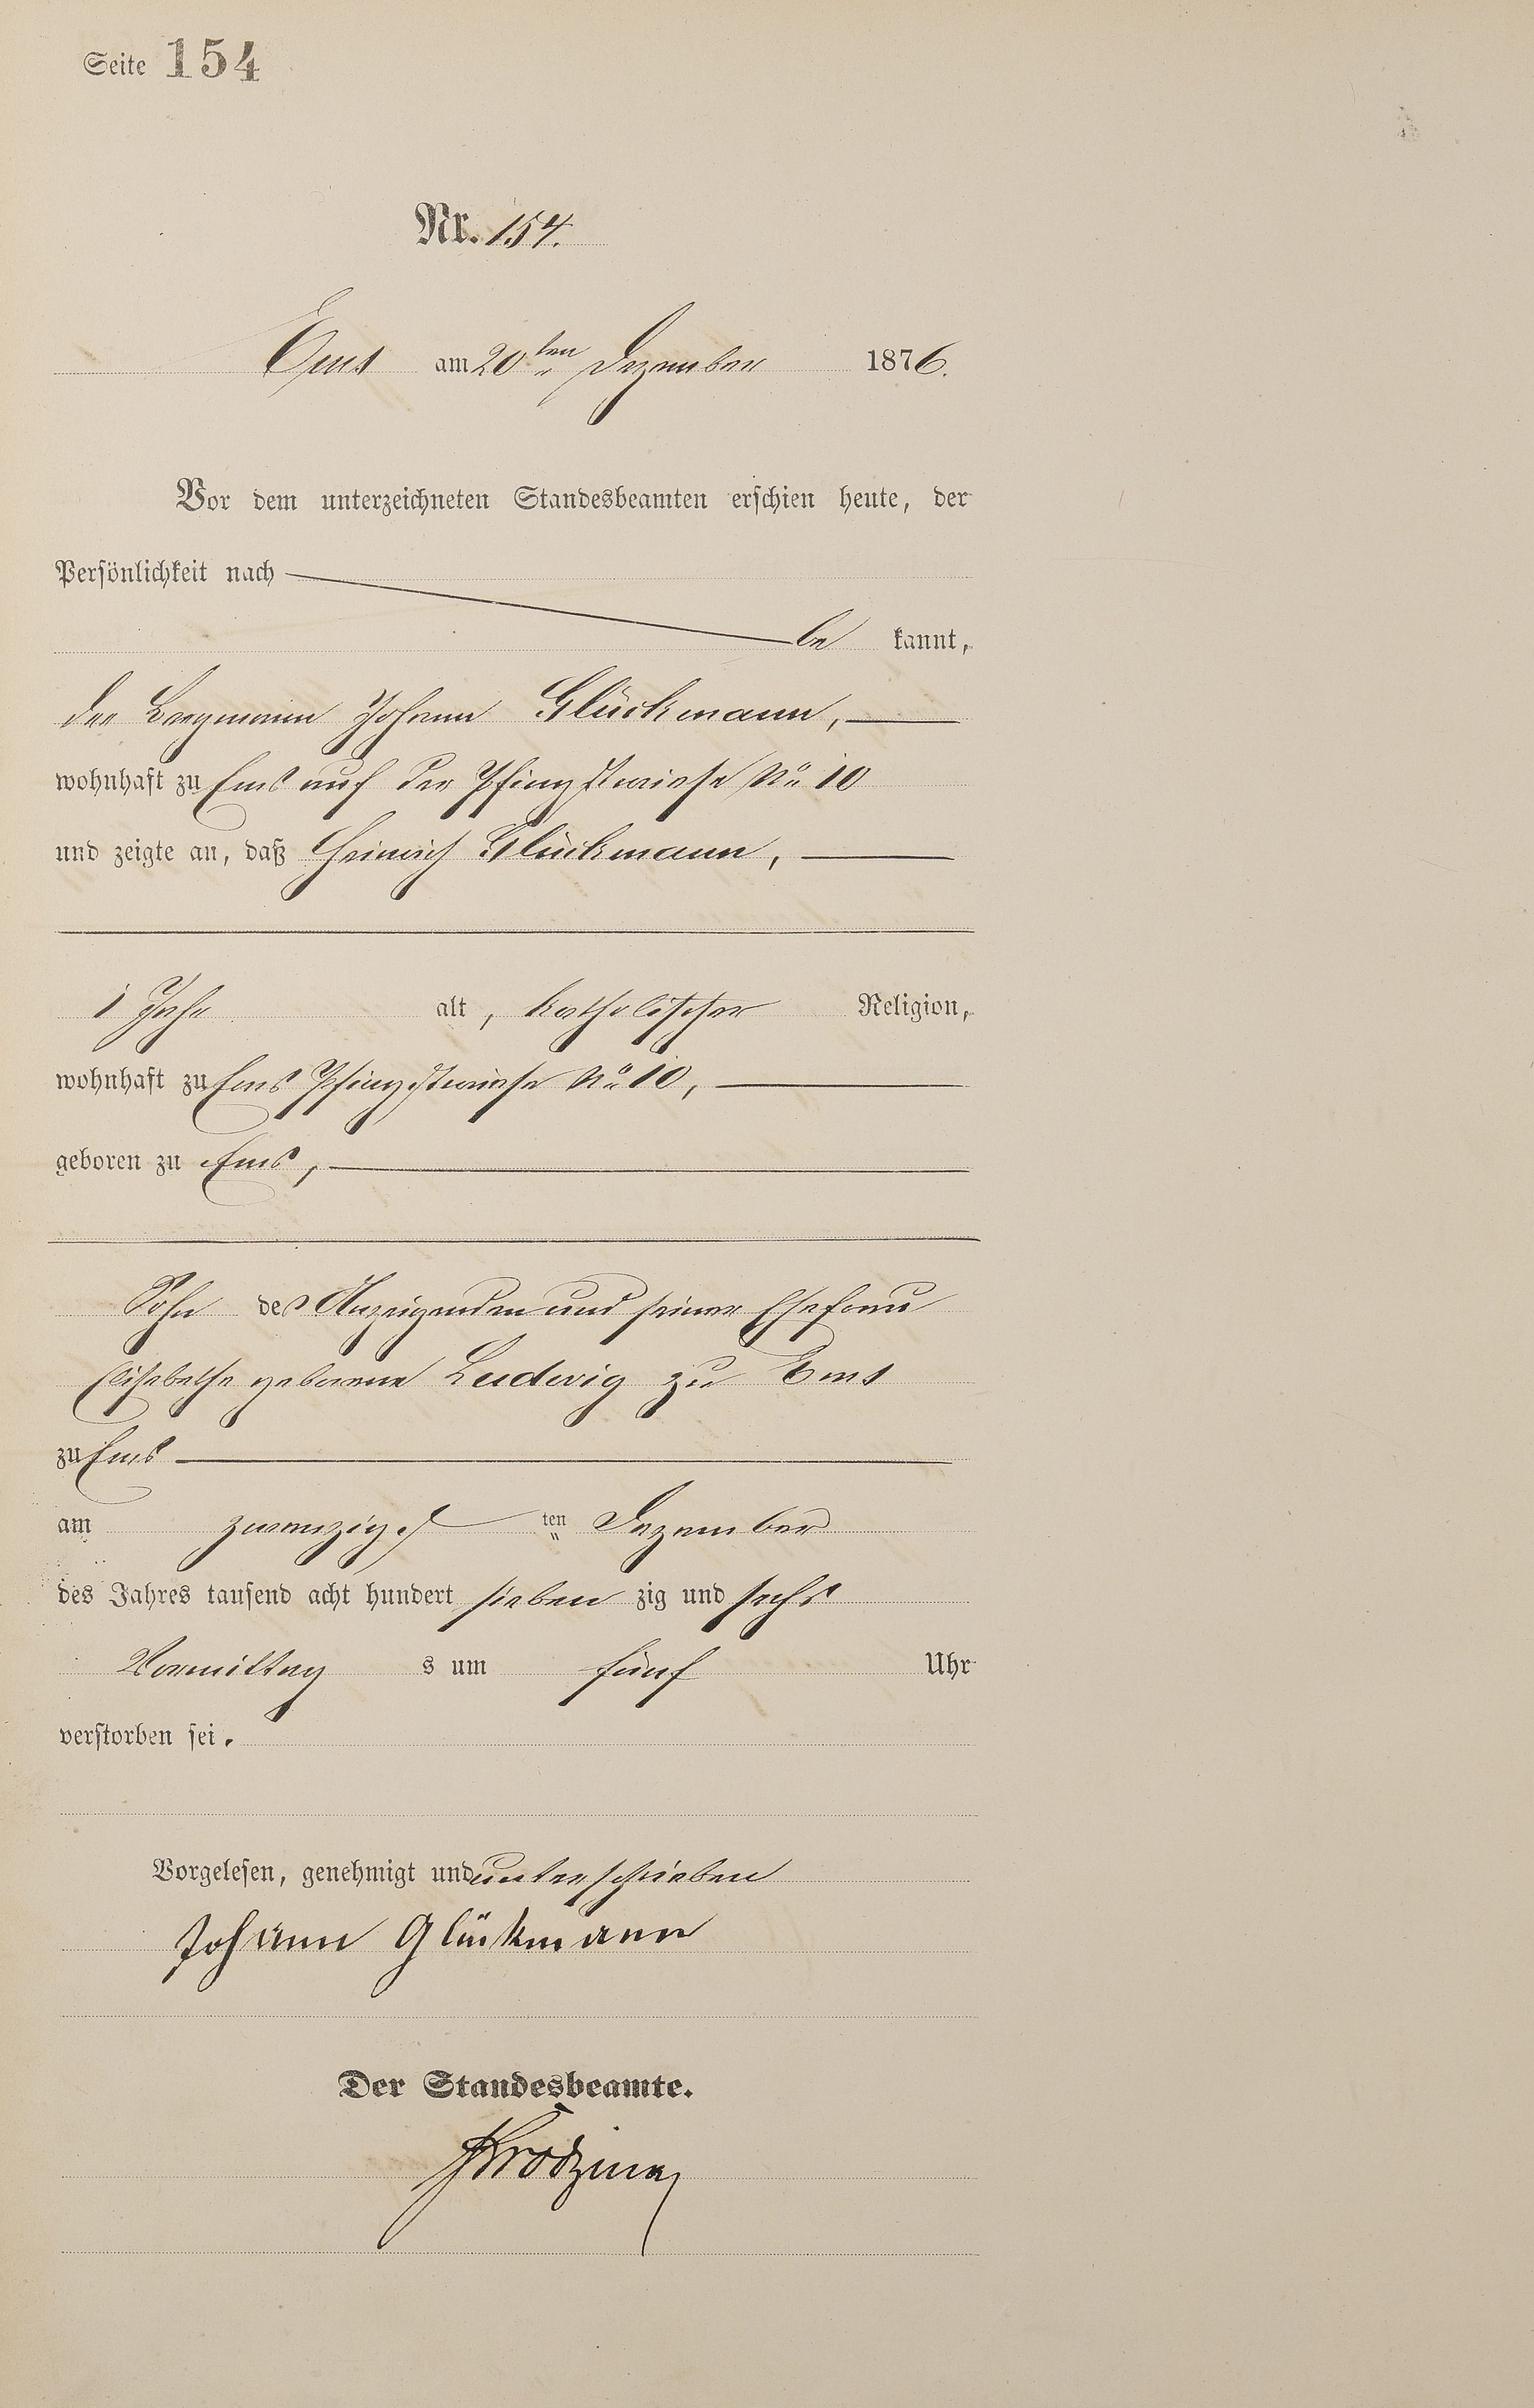 Seite 154
Nr. 154.
Ems am 20ten Dezember 1876.
Vor dem unterzeichneten Standesbeamten erschien heute, der
Persönlichkeit nach
be kannt,
der Bergmann Johann Glückmann,
wohnhaft zu Ems auf der Pfingstwiese No 10
und zeigte an, daß Heinrich Glückmann,
1 Jahr alt, katholischer Religion,
wohnhaft zu Ems Pfingstwiese No 10,
geboren zu Ems,
Sohn des Anzeigenden und seiner Ehefrau
Elisabethe geborene Ludwig zu Ems
zu Ems
am zwanzigsten Dezember
des Jahres tausend acht hundert sieben zig und sechs
Vormittag s um fünf Uhr
verstorben sei.
Vorgelesen, genehmigt und unterschrieben
Johann Glückmann
Der Standesbeamte.